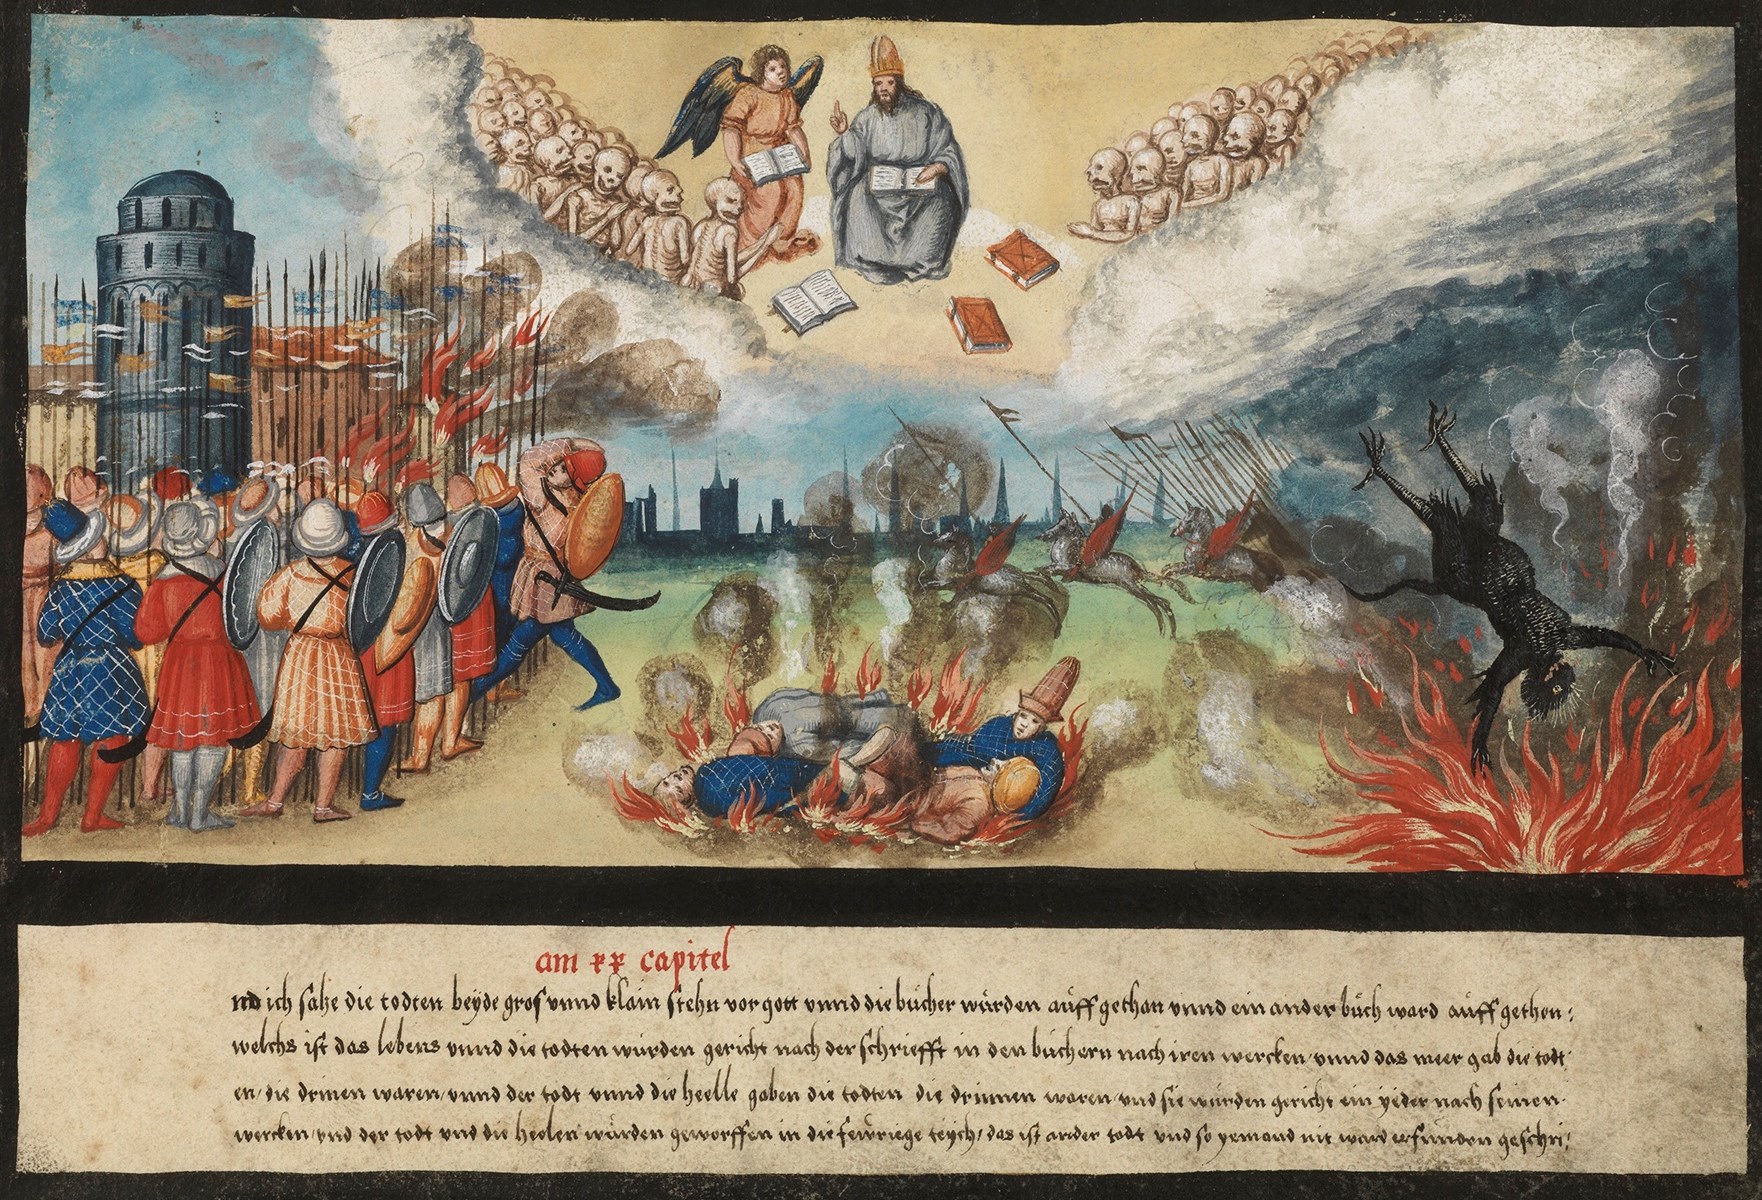 am xx capitel
nd ich sahe die todten beyde gros vnnd klain stehn vor gott vnnd die bücher würden aüff gethan vnnd ein ander büch ward aüff gethon:
welchs ist das lebens vnnd die todten würden gericht nach der schriefft in den büchern nach iren wercken/vnnd das meer gab die todt
en/die drinen waren/vnnd der todt vnnd die heelle gaben die todten die drinnen waren/vnd sie würden gericht ein yeder nach seinen.
wercken/vnd der todt vnd die heelen würden geworffen in die feüriege teych/das ist ander todt vnd so yemand nit ward erfunden geschri: